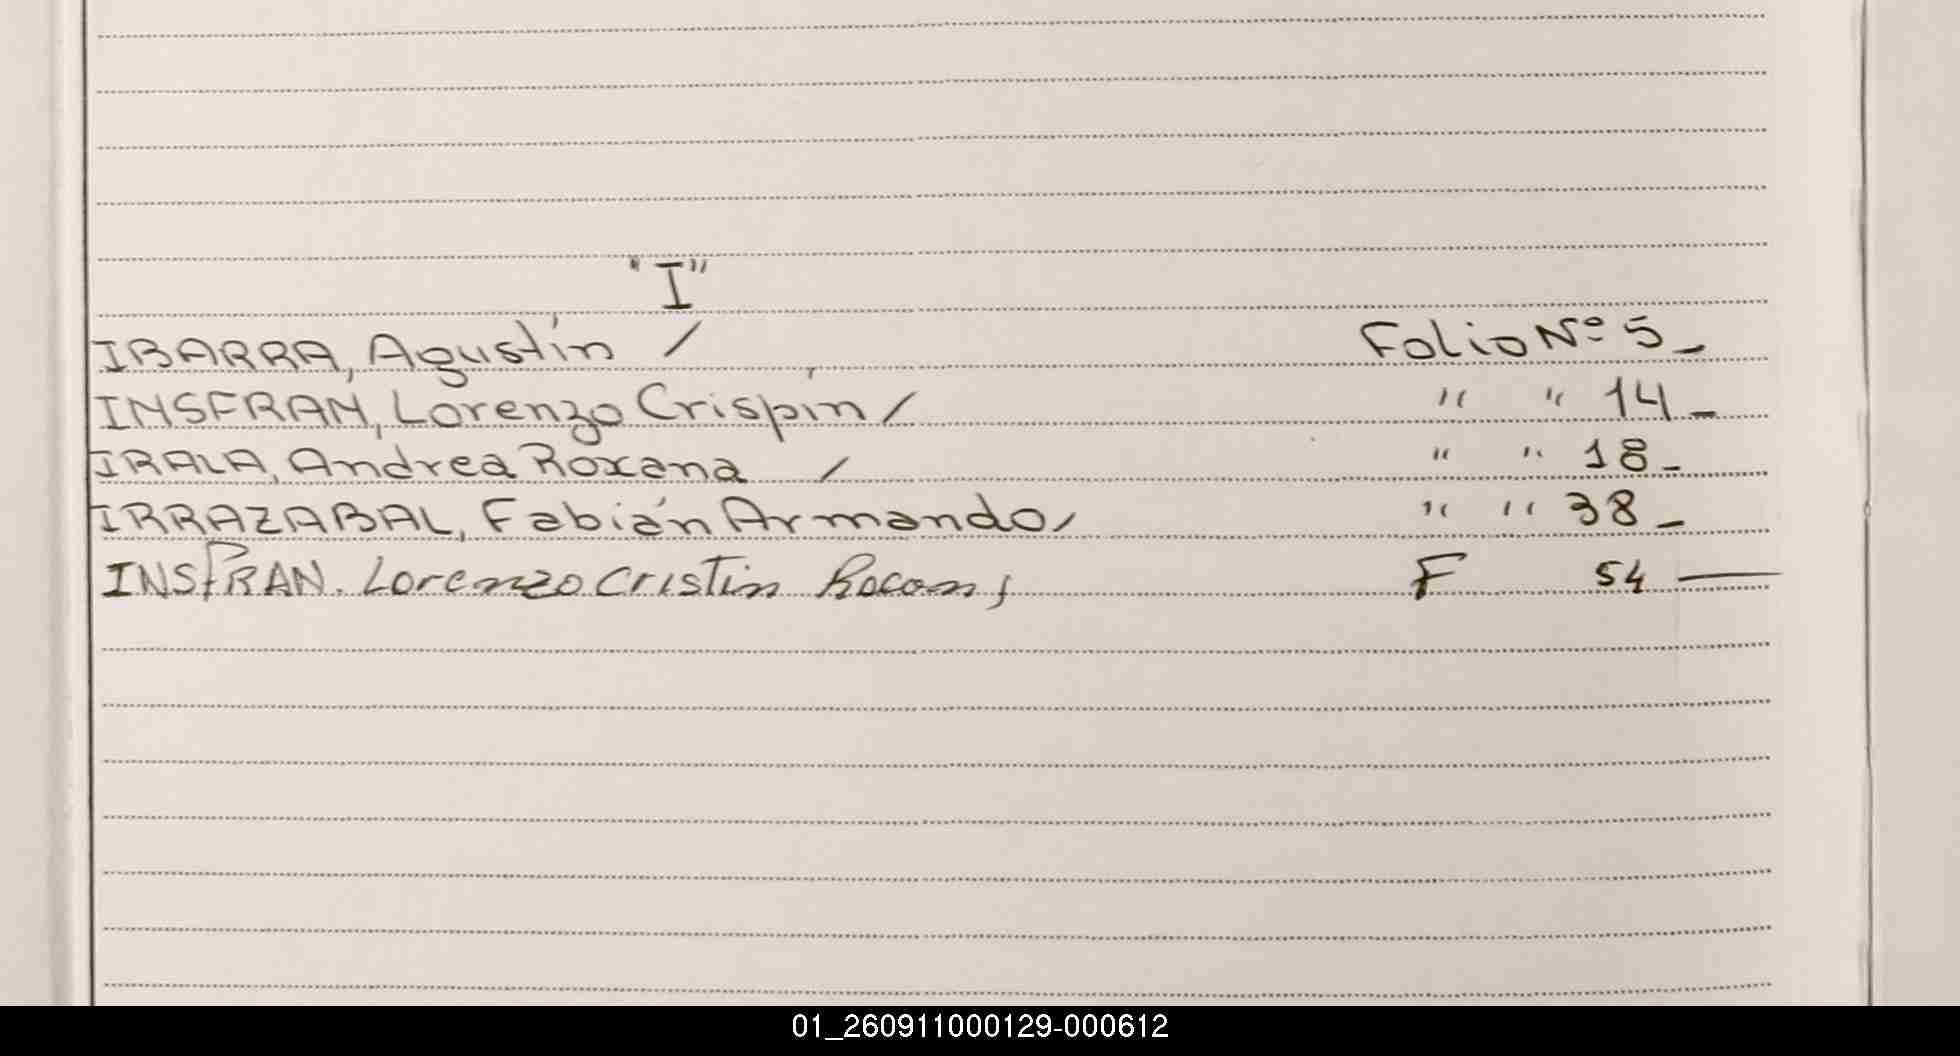 "I"
IBARRA, Agustín / Folio Nº 5_
INSFRAN, Lorenzo Crispín / " " 14_
IRALA, Andrea Roxana / " " 18_
IRRAZABAL, Fabián Armando / " " 38_
INSFRAN. Lorenzo Cristin F 54 —
01_260911000129-000612